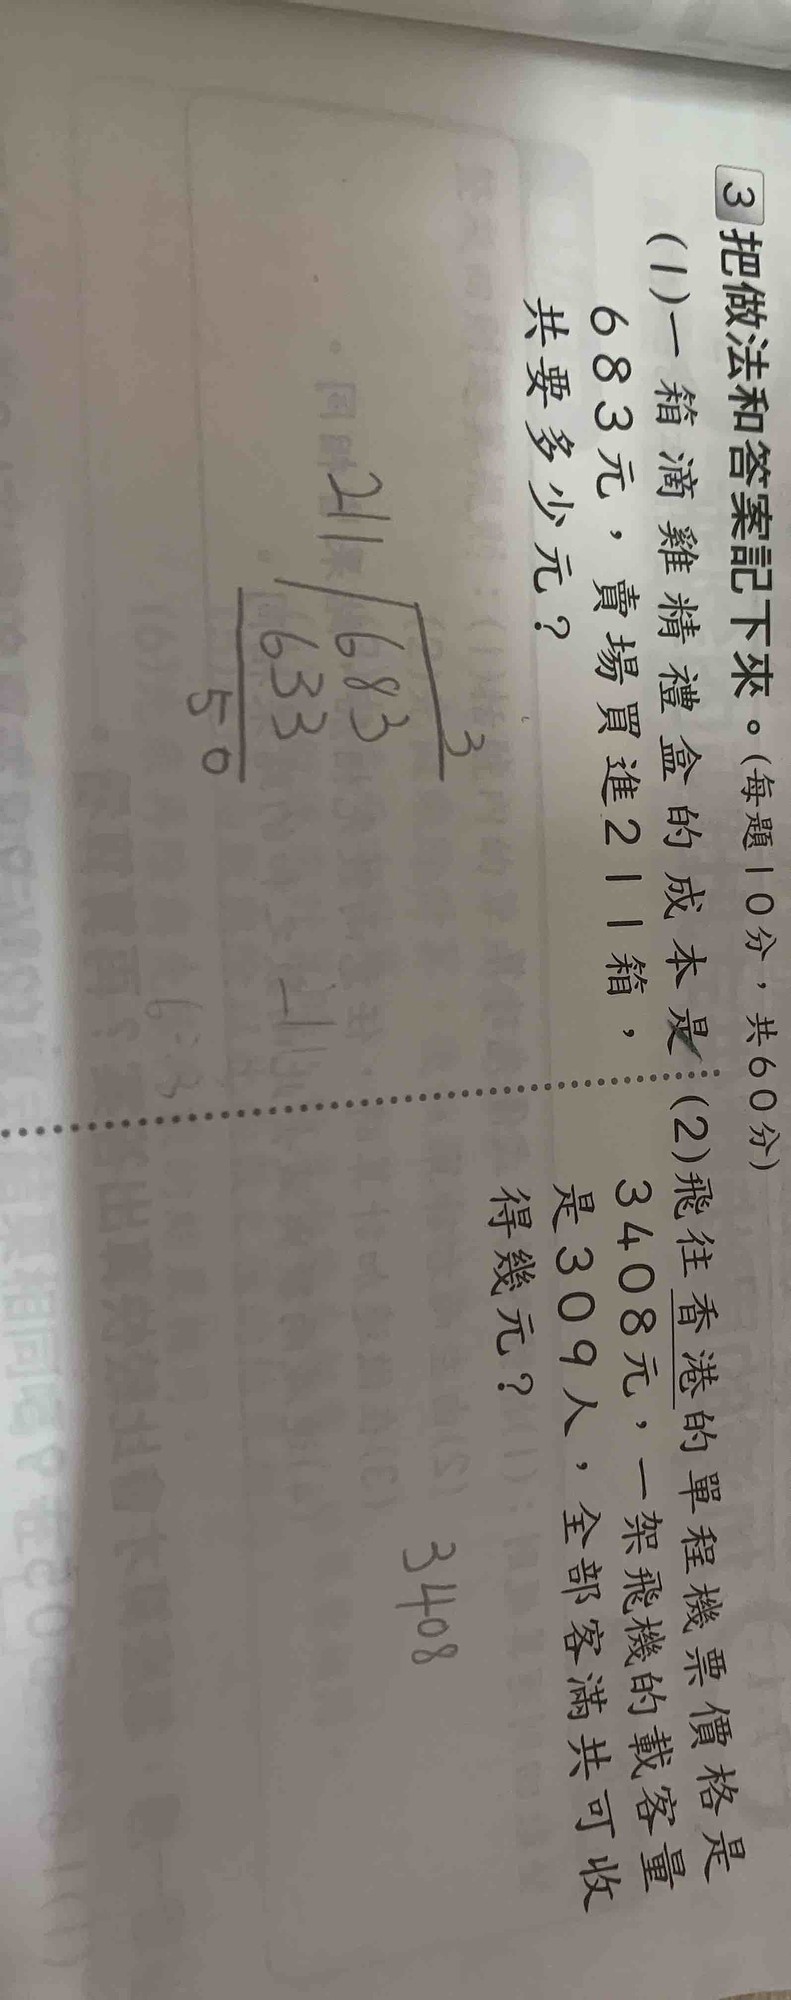 3 把做法和答案記下來。(每題10分，共60分)
(1)一箱滴雞精禮盒的成本是
683元，賣場買進211箱，
共要多少元？
3
211 683
633
50
(2)飛往香港的單程機票價格是
3408元，一架飛機的載客量
是309人，全部客滿共可收
得幾元？
3408